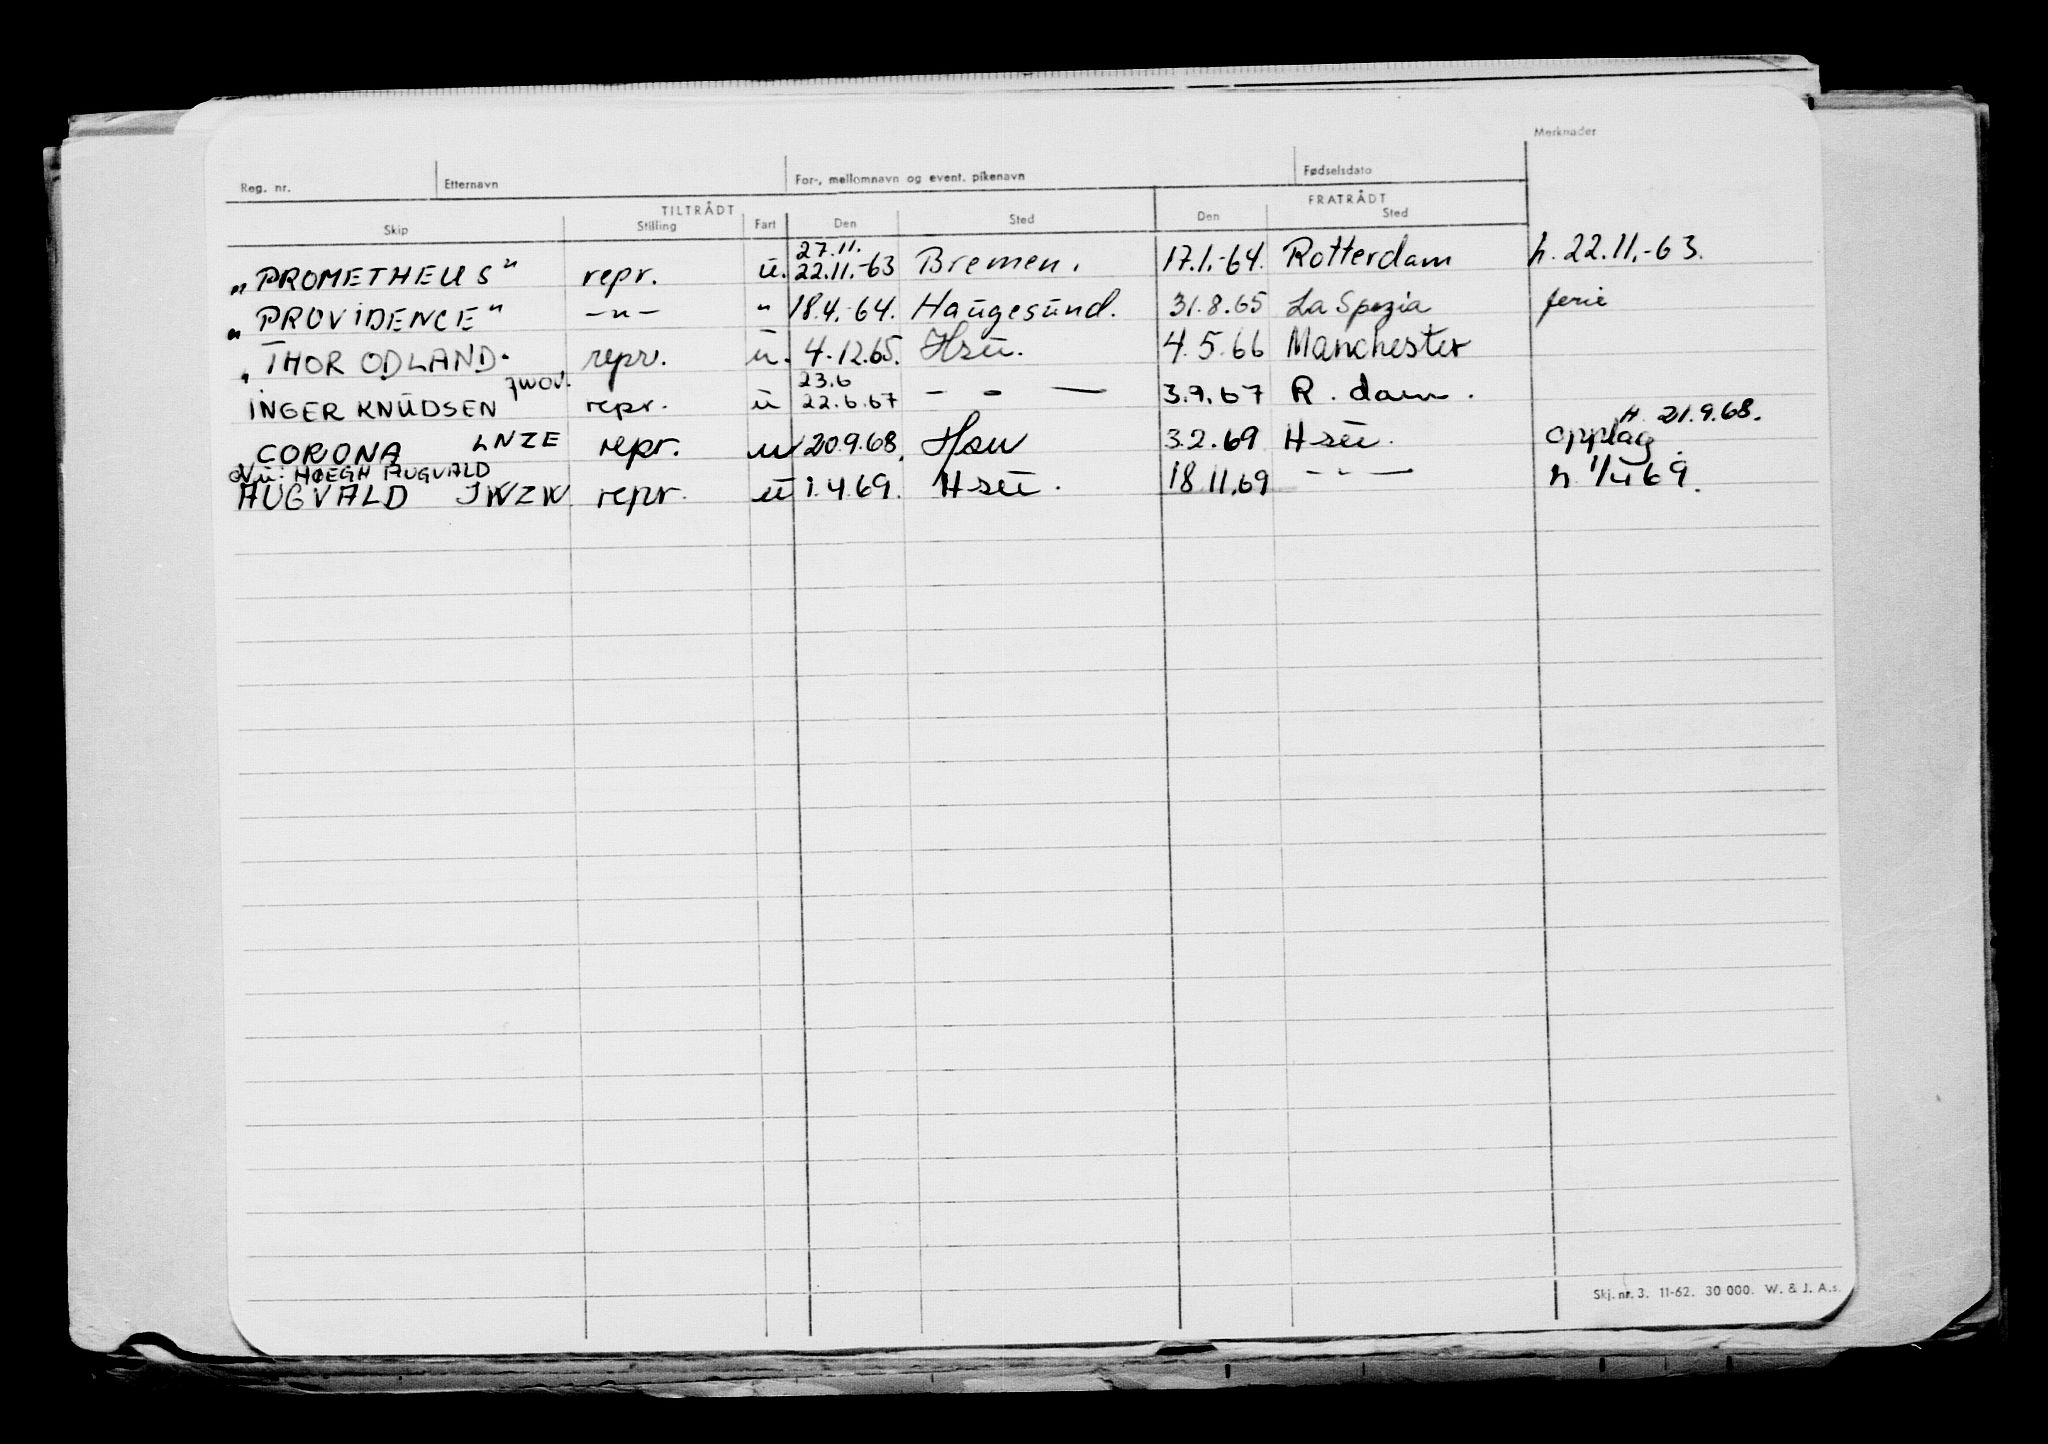 Merknader
Reg. nr. Etternavn For-, mellomnavn og event. pikenavn Fødselsdato
TILTRÅDT FRATRÅDT
Skip Stilling Fart Den Sted Den Sted
27.11.
„PROMETHEUS" repr. u. 22.11.-63 Bremen. 17.1.-64. Rotterdam h. 22.11.-63.
„PROVIDENCE" -"- " 18.4.-64. Haugesund. 31.8.65 La Spezia ferie
THOR ODLAND. repr. u. 4.12.65. Hsu. 4.5.66 Manchester
JWOV. 23.6
INGER KNUDSEN repr. u 22.6.67 - - — 3.9.67 R.dam.
H. 21.9.68.
CORONA LNZE repr. u 20.9.68. Hsu 3.2.69 Hsu. opplag.
Nu: HØEGH AUGVALD
AUGVALD JWZW. repr. u 1.4.69. Hsu. 18.11.69 - - — h 1/4 69.
Skj. nr. 3. 11-62. 30 000. W. & J. A.s.